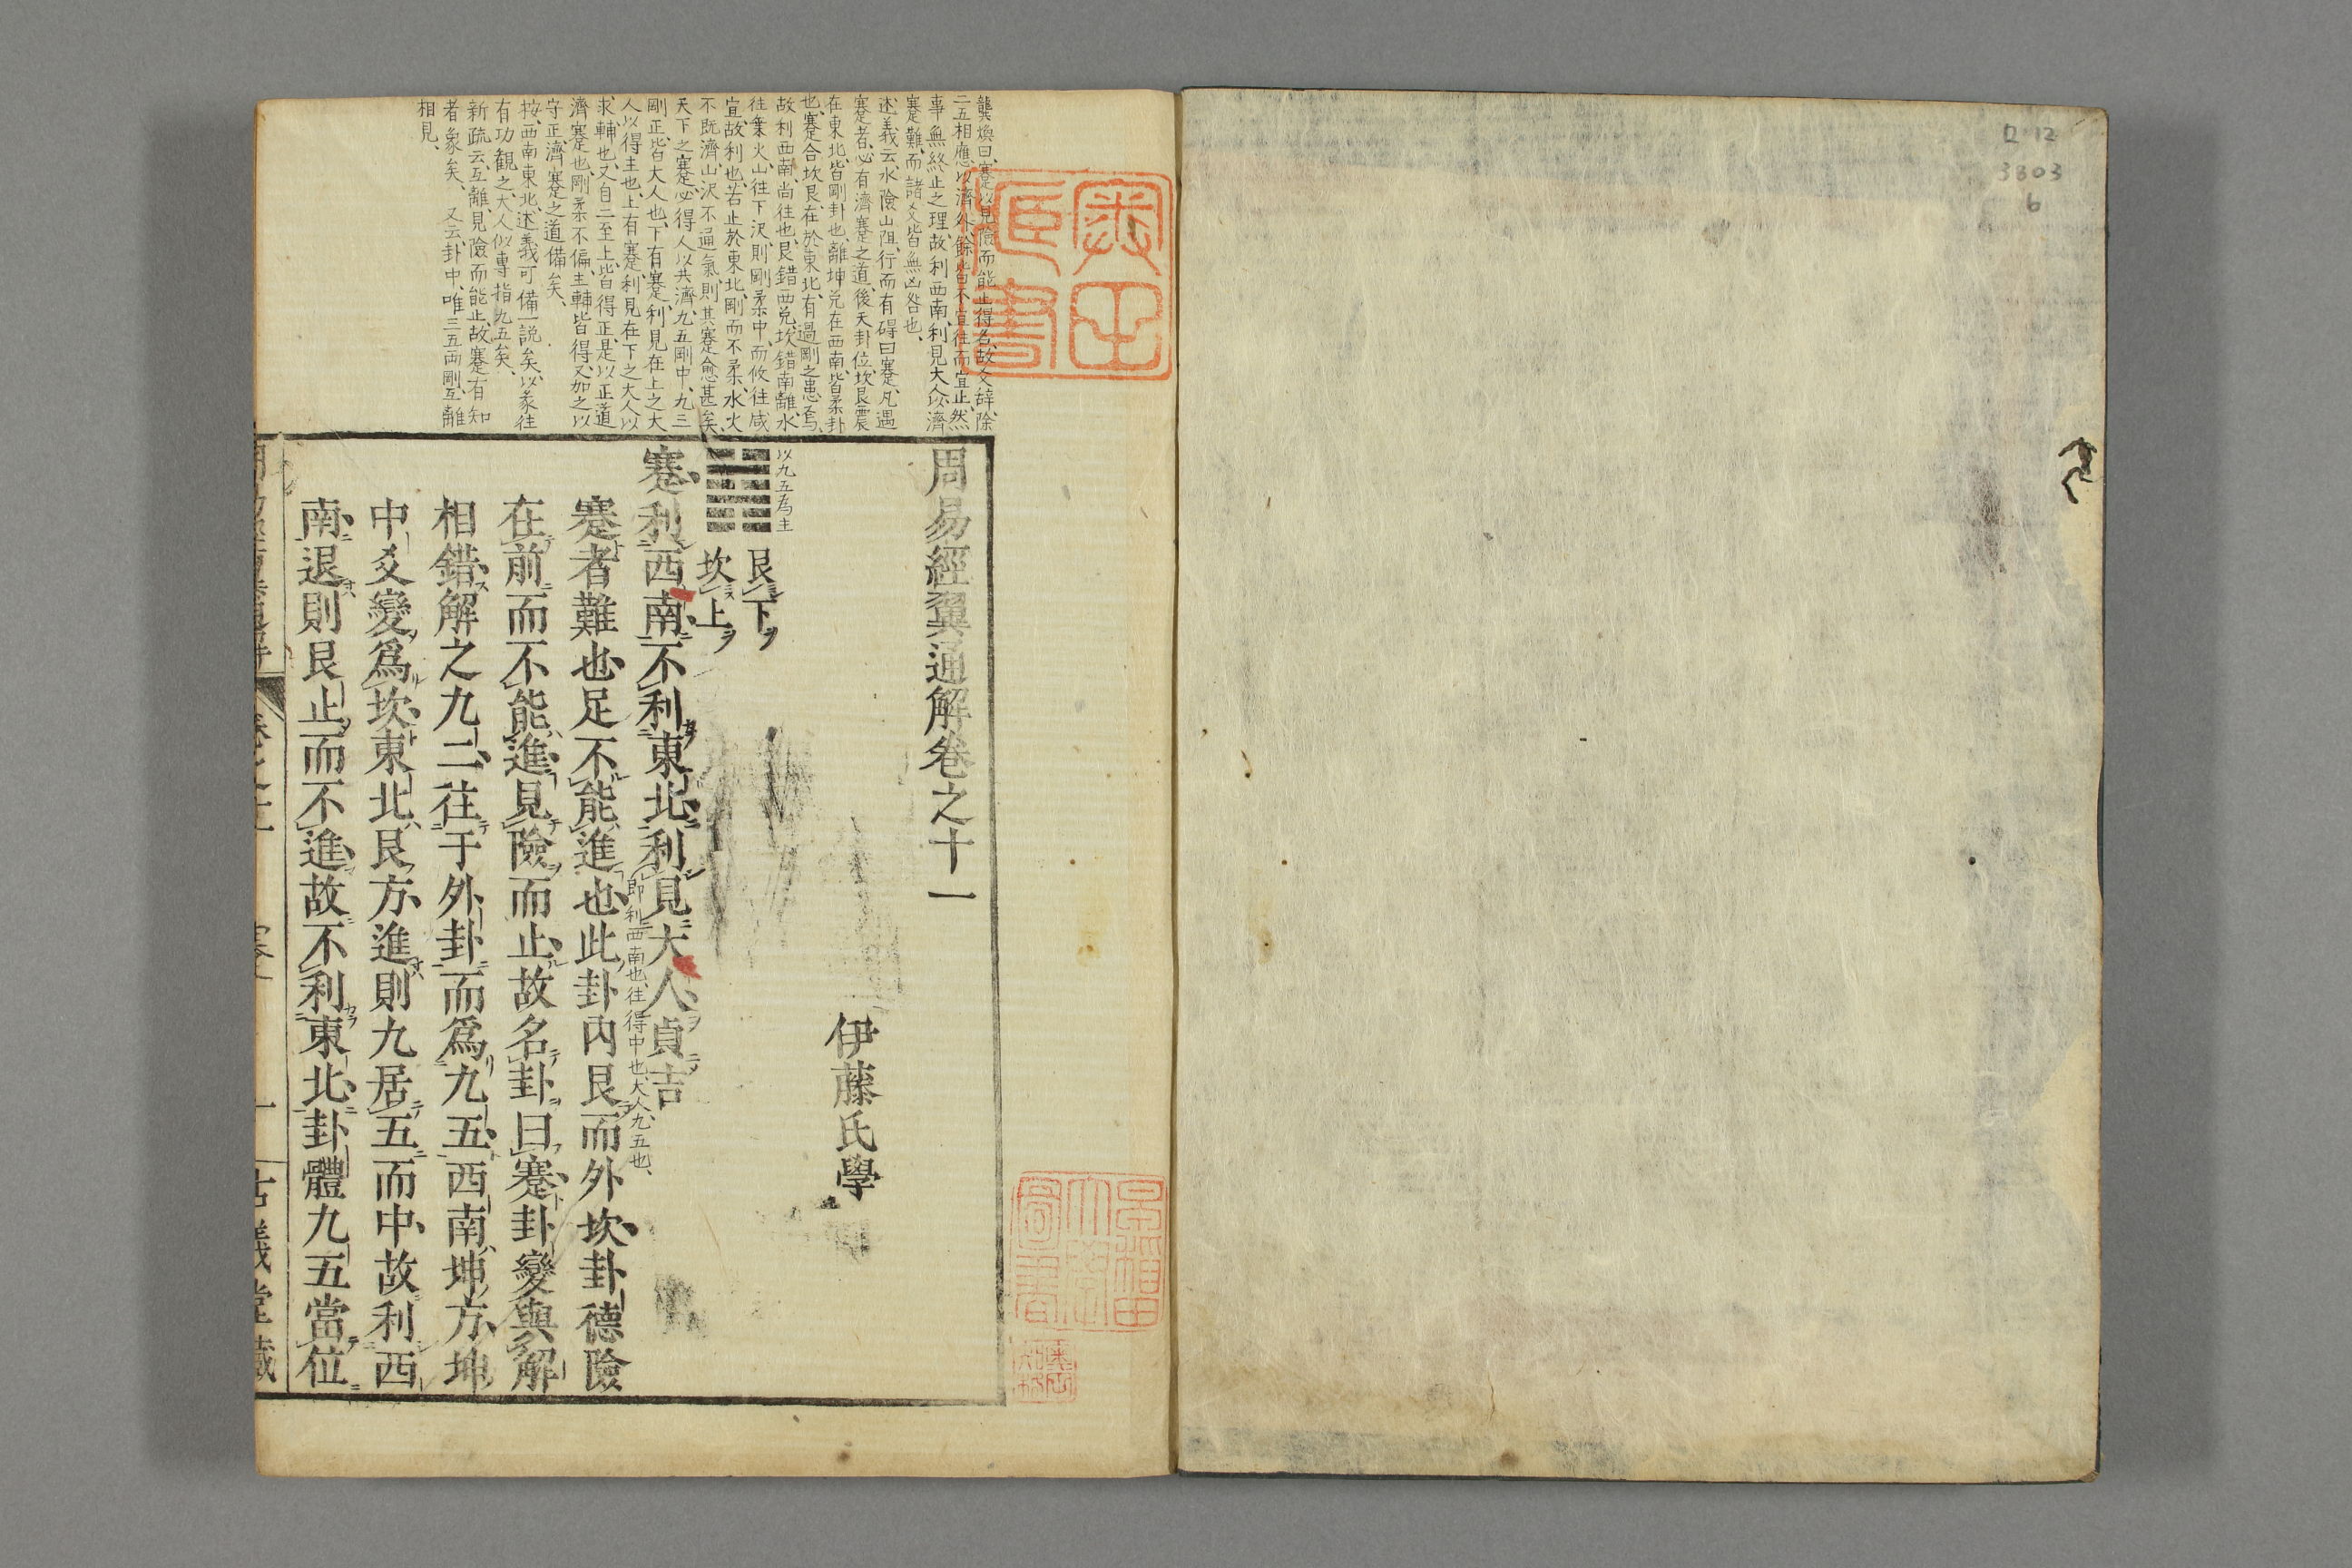 ロ12
3803
6
龔煥曰、蹇以見險而能止得名、故爻辭除
二五相應以濟外、餘皆不宜往而宜止、然
事無終止之理、故利西南、利見大人以濟
蹇難、而諸爻皆無凶咎也、
述義云、水險山阻、行而有碍曰蹇、凡遇
蹇者、必有濟蹇之道、後天卦位、坎艮震
在東北、皆剛卦也、離坤兌在西南、皆柔卦
也、蹇合坎艮、在於東北、有過剛之患焉、
故利西南、尚往也、艮錯西兌、坎錯南離、水
往乗火、山往下沢、則剛柔中、而攸往咸
宜、故利也、若止於東北、剛而不柔、水火
不既濟、山沢不通氣、則其蹇愈甚矣、
天下之蹇、必得人以共濟、九五剛中、九三
剛正、皆大人也、下有蹇、利見在上之大
人以得主也、上有蹇、利見在下之大人以
求輔也、又自二至上、皆得正、是以正道
濟蹇也、剛柔不偏、主輔皆得、又加之以
守正、濟蹇之道備矣、
按、西南東北、述義可備一説矣、以彖往
有功觀之、大人似專指九五矣、
新疏云、互離、見險而能止、故蹇有知
者象矣、 又云卦中、唯三五両剛、互離
相見、
周易經翼通解卷之十一
伊藤氏學
以九五為主
艮下
坎上
蹇利西南不利東北利見大人貞吉
即利西南也、往得中也、大人九五也、
蹇者難也足不能進也此卦内艮而外坎卦德險
在前而不能進見險而止故名卦曰蹇卦變與解
相錯解之九二往于外卦而爲九五西南坤方坤
中爻變爲坎東北艮方進則九居五而中故利西
南退則艮止而不進故不利東北卦體九五當位
古義堂藏